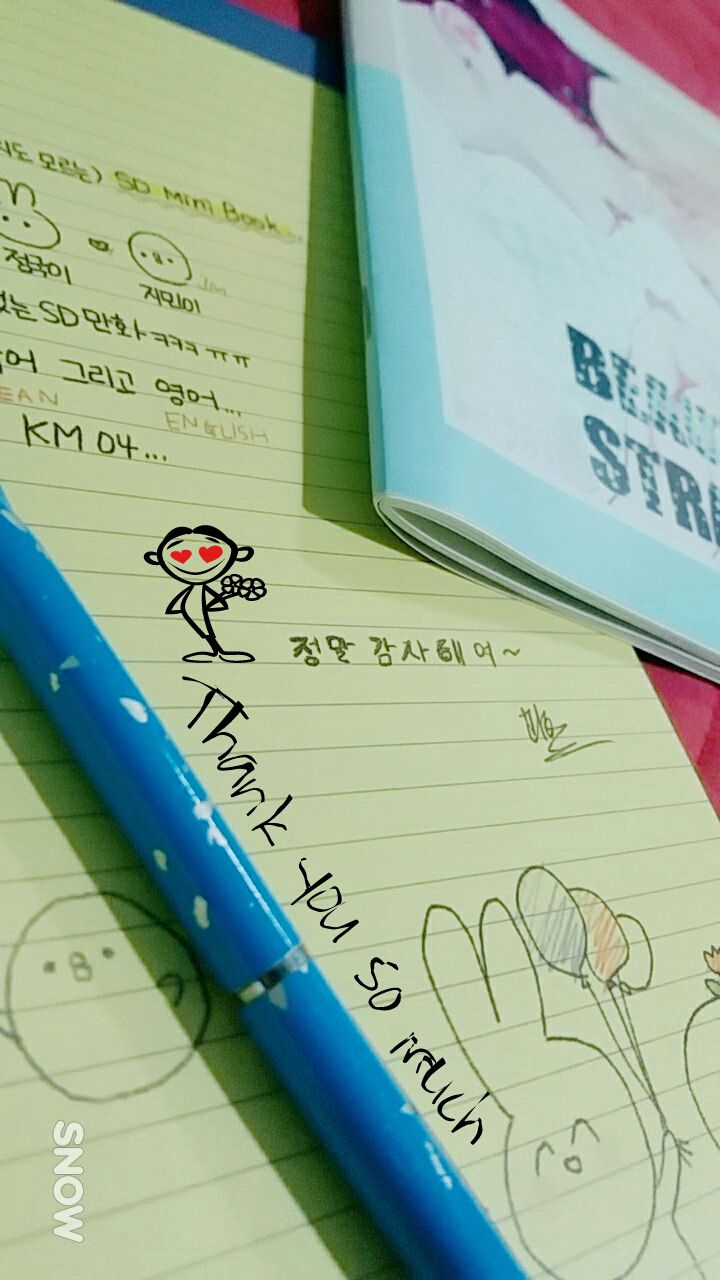 모르는) SD Mini Book...
정국이
지민이
JM
없는 SD 만화 ㅋㅋㅋ ㅠㅠ
어 그리고 영어...
EAN ENGLISH
KM 04...
정말 감사해여~
Thank you so much
SNOW